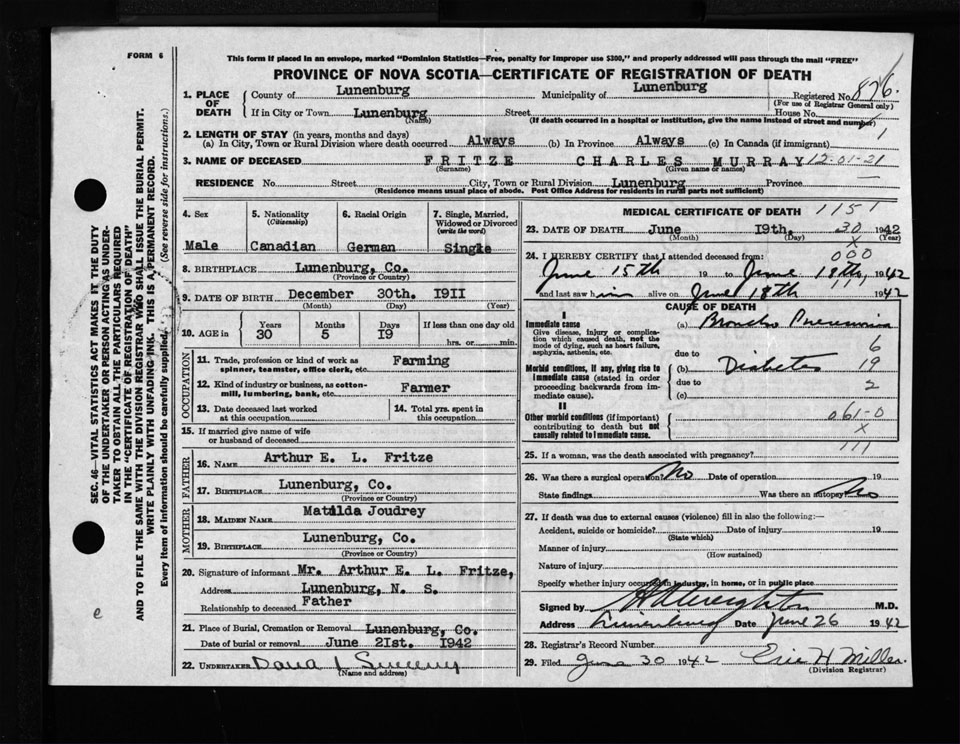 FORM 6
This form if placed in an envelope, marked "Dominion Statistics—Free, penalty for improper use $300," and properly addressed will pass through the mail "FREE"
PROVINCE OF NOVA SCOTIA—CERTIFICATE OF REGISTRATION OF DEATH
1. PLACE OF DEATH
County of Lunenburg Municipality of Lunenburg Registered No. 876.
(For use of Registrar General only)
If in City or Town Lunenburg Street House No.
(Name) (If death occurred in a hospital or institution, give the name instead of street and number)
2. LENGTH OF STAY (in years, months and days)
(a) In City, Town or Rural Division where death occurred Always (b) In Province Always (c) In Canada (if immigrant)
3. NAME OF DECEASED FRITZE CHARLES MURRAY 12-01-21
(Surname) (Given name or names)
RESIDENCE No. Street City, Town or Rural Division Lunenburg Province
(Residence means usual place of abode. Post Office Address for residents in rural parts not sufficient)
4. Sex 5. Nationality (Citizenship) 6. Racial Origin 7. Single, Married, Widowed or Divorced (write the word)
Male Canadian German Single
8. BIRTHPLACE Lunenburg, Co.
(Province or Country)
9. DATE OF BIRTH December 30th. 1911
(Month) (Day) (Year)
10. AGE in Years Months Days If less than one day old
30 5 19 hrs. or min.
OCCUPATION
11. Trade, profession or kind of work as spinner, teamster, office clerk, etc. Farming
12. Kind of industry or business, as cotton-mill, lumbering, bank, etc. Farmer
13. Date deceased last worked at this occupation
14. Total yrs. spent in this occupation
15. If married give name of wife or husband of deceased
FATHER
16. NAME Arthur E. L. Fritze
17. BIRTHPLACE Lunenburg, Co.
(Province or Country)
MOTHER
18. MAIDEN NAME Matilda Joudrey
19. BIRTHPLACE Lunenburg, Co.
(Province or Country)
20. Signature of informant Mr. Arthur E. L. Fritze,
Address Lunenburg, N. S.
Relationship to deceased Father
21. Place of Burial, Cremation or Removal Lunenburg, Co.
Date of burial or removal June 21st. 1942
22. UNDERTAKER
(Name and address)
MEDICAL CERTIFICATE OF DEATH 1151
23. DATE OF DEATH June 19th, 30 1942
(Month) (Day) x (Year)
24. I HEREBY CERTIFY that I attended deceased from: 000
June 15th 19 to June 18th, 1942
and last saw him alive on June 18th 1942
111
CAUSE OF DEATH
I
Immediate cause
Give disease, injury or complication which caused death, not the mode of dying, such as heart failure, asphyxia, asthenia, etc.
(a) Broncho Pneumonia
due to 6
Morbid conditions, if any, giving rise to immediate cause (stated in order proceeding backwards from immediate cause).
(b) Diabetes 19
due to 2
(c)
II
Other morbid conditions (if important) contributing to death but not causally related to immediate cause.
061-0
x
111
25. If a woman, was the death associated with pregnancy?
26. Was there a surgical operation? No Date of operation 19
State findings Was there an autopsy? No
27. If death was due to external causes (violence) fill in also the following:—
Accident, suicide or homicide? Date of injury 19
(State which)
Manner of injury
(How sustained)
Nature of injury
Specify whether injury occurred in industry, in home, or in public place
Signed by M.D.
Address Lunenburg Date June 26 1942
28. Registrar's Record Number
29. Filed June 30 1942 Eric H Miller.
(Division Registrar)
SEC. 46—VITAL STATISTICS ACT MAKES IT THE DUTY
OF THE UNDERTAKER OR PERSON ACTING AS UNDER-
TAKER TO OBTAIN ALL THE PARTICULARS REQUIRED
IN THE "CERTIFICATE OF REGISTRATION OF DEATH"
AND TO FILE THE SAME WITH THE DIVISION REGISTRAR WHO SHALL ISSUE THE BURIAL PERMIT.
WRITE PLAINLY WITH UNFADING INK. THIS IS A PERMANENT RECORD.
Every item of information should be carefully supplied. (See reverse side for instructions.)
e